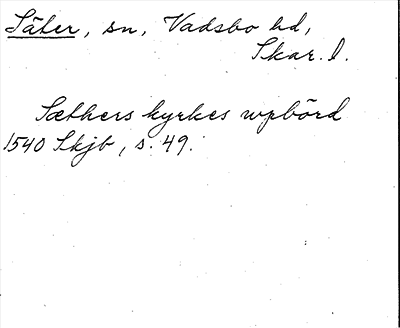 Säter, sn, Vadsbo hd,
Skar. l.
Sæthers kyrkes wpbörd
1540 Skjb, s. 49.